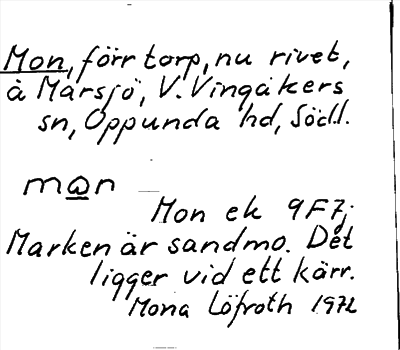 Mon, förr torp, nu rivet,
å Marsjö, V. Vingåkers
sn, Oppunda hd, Södl.
mo̲n
Mon ek 9F7j
Marken är sandmo. Det
ligger vid ett kärr.
Mona Löfroth 1972